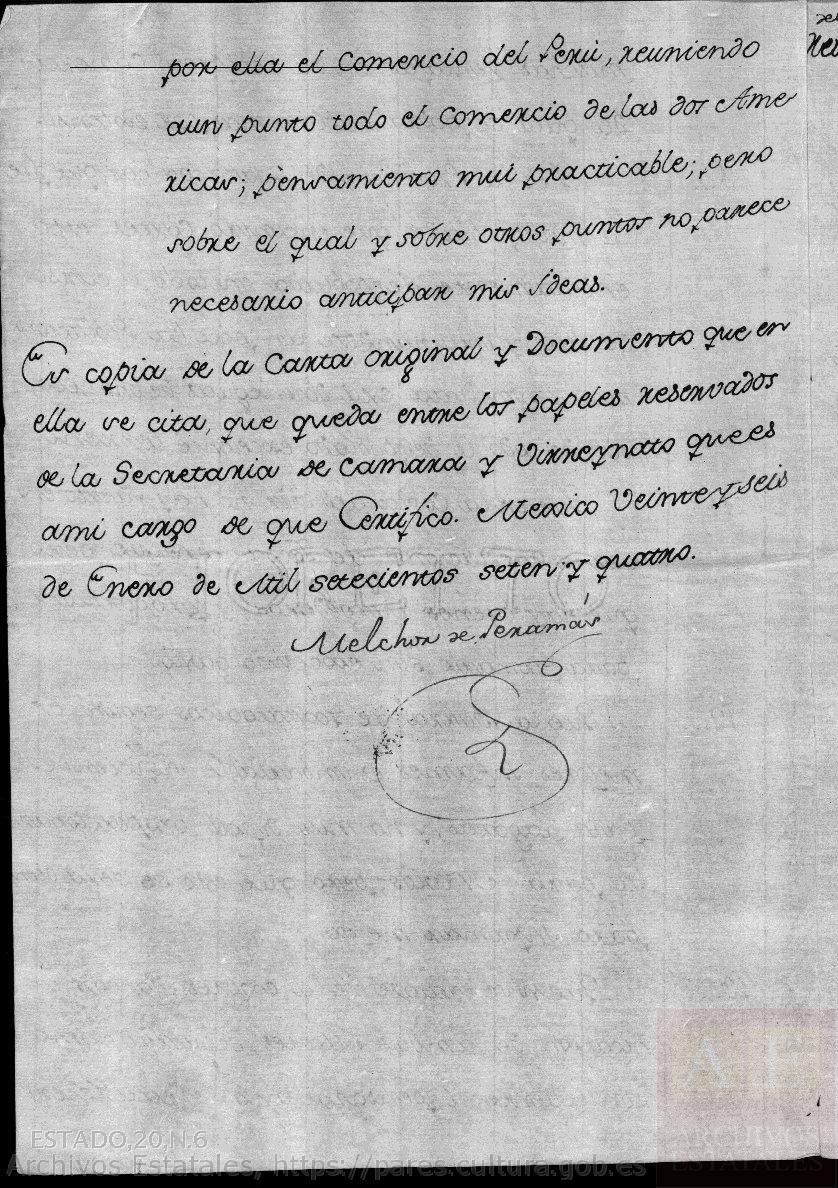 por ella el Comercio del Perú, reuniendo
aun punto todo el Comercio de las dos Ame
ricas; pensamiento mui practicable; pero
sobre el qual y sobre otros puntos no parece
necesario anticipar mis ideas.
Es copia de la Carta original y Documento que en
ella se cita, que queda entre los papeles reservados
de la Secretaria de Camara y Virreynato que es
ami cargo de que Certifico. Mexico Veinte y seis
de Enero de Mil setecientos seten.ª y quatro.
Melchor de Peramás
ESTADO,20,N.6
Archivos Estatales, https://pares.cultura.gob.es
ARCHIVOS
ESTATALES